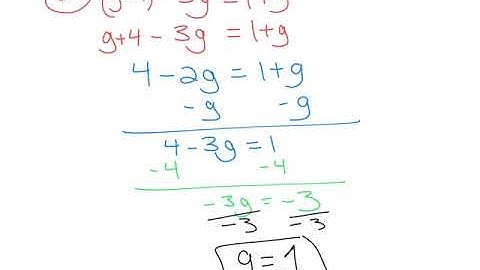 g+4 - 3g = 1+g
4 - 2g = 1+g
-g -g
4 - 3g = 1
-4 -4
-3g = -3
-3 -3
g = 1